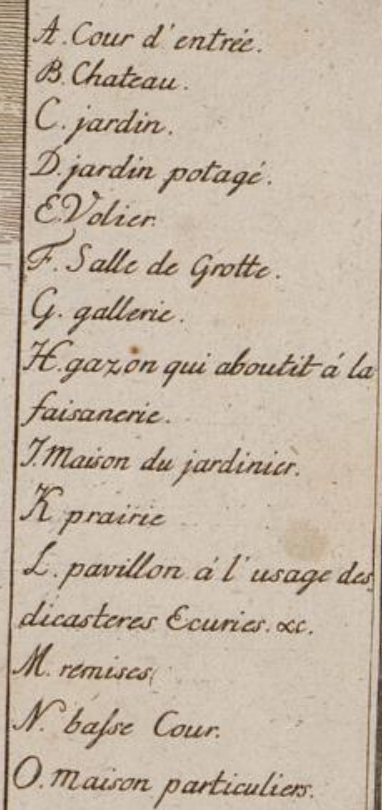 A. Cour d'entrée.
B. Chateau.
C. jardin.
D. jardin potagé.
E. Volier.
F. Salle de Grotte.
G. gallerie.
H. gazon qui aboutit á la
faisanerie.
J. Maison du jardinier.
K prairie
L. pavillon á l'usage des
dicasteres Ecuries. &c.
M. remises
N. baſse Cour.
O. maison particuliers.